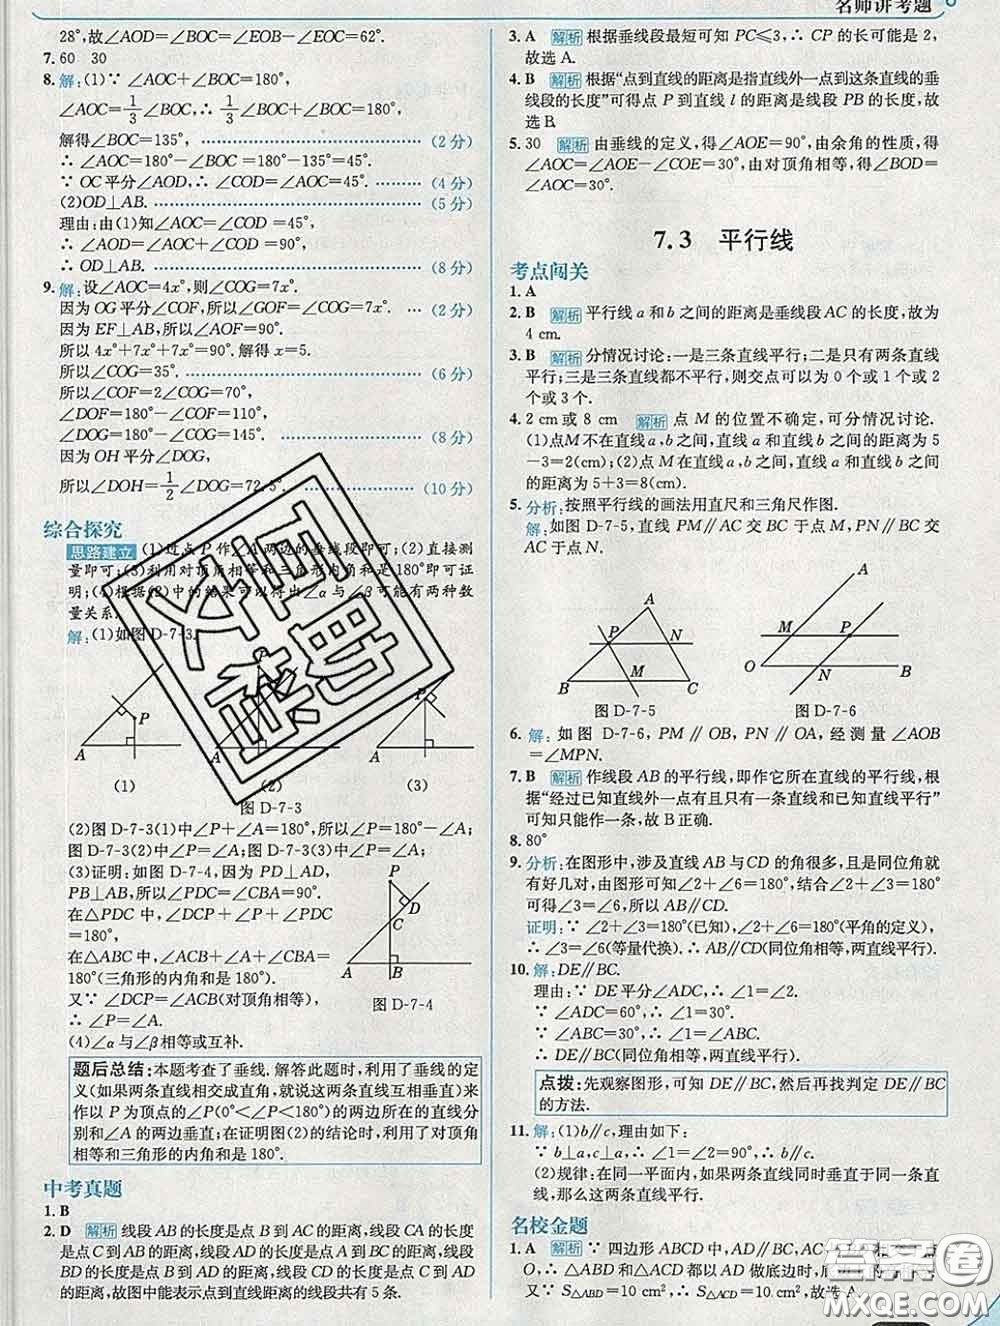 名师讲考题
28°,故∠AOD=∠BOC=∠EOB-∠EOC=62°.
7.60　30
8.解:(1)∵∠AOC+∠BOC=180°,
∠AOC=1/3∠BOC,∴1/3∠BOC+∠BOC=180°,
解得∠BOC=135°, (2分)
∴∠AOC=180°-∠BOC=180°-135°=45°.
∵OC平分∠AOD,∴∠COD=∠AOC=45°. (4分)
(2)OD⊥AB. (5分)
理由:由(1)知∠AOC=∠COD=45°,
∴∠AOD=∠AOC+∠COD=90°,
∴OD⊥AB. (8分)
9.解:设∠AOC=4x°,则∠COG=7x°.
因为OG平分∠COF,所以∠GOF=∠COG=7x°. (2分)
因为EF⊥AB,所以∠AOF=90°.
所以4x°+7x°+7x°=90°.解得x=5.
所以∠COG=35°. (6分)
所以∠COF=2∠COG=70°,
∠DOF=180°-∠COF=110°,
∠DOG=180°-∠COG=145°. (8分)
因为OH平分∠DOG,
所以∠DOH=1/2∠DOG=72.5°. (10分)
综合探究
思路建立 (1)过点P作∠A两边的垂线段即可;(2)直接测
量即可;(3)利用对顶角相等和三角形内角和是180°即可证
明;(4)根据(2)中的结果可以得出∠α与∠β可能有两种数
量关系.
解:(1)如图D-7-3.
P
A
(1)
P
A
(2)
P
A
(3)
图D-7-3
(2)图D-7-3(1)中∠P+∠A=180°,所以∠P=180°-∠A;
图D-7-3(2)中∠P=∠A;图D-7-3(3)中∠P=∠A.
(3)证明:如图D-7-4,因为PD⊥AD,
PB⊥AB,所以∠PDC=∠CBA=90°.
在△PDC中,∠P+∠PCD+∠PDC
=180°,
在△ABC中,∠A+∠ACB+∠CBA=
180°(三角形的内角和是180°).
又∵∠DCP=∠ACB(对顶角相等),
∴∠P=∠A.
(4)∠α与∠β相等或互补.
P
D
C
A
B
图D-7-4
题后总结:本题考查了垂线.解答此题时,利用了垂线的定
义(如果两条直线相交成直角,就说这两条直线互相垂直)来
作以P为顶点的∠P(0°<∠P<180°)的两边所在的直线分
别和∠A的两边垂直;在证明图(2)的结论时,利用了对顶角
相等和三角形的内角和是180°.
中考真题
1.B
2.D 解析 线段AB的长度是点B到AC的距离,线段CA的长度
是点C到AB的距离,线段AD的长度是点A到BC的距离,线段
BD的长度是点B到AD的距离,线段CD的长度是点C到AD
的距离,故图中能表示点到直线距离的线段共有5条.
3.A 解析 根据垂线段最短可知PC≤3,∴CP的长可能是2,
故选A.
4.B 解析 根据“点到直线的距离是指直线外一点到这条直线的垂
线段的长度”可得点P到直线l的距离是线段PB的长度,故
选B.
5.30 解析 由垂线的定义,得∠AOE=90°,由余角的性质,得
∠AOC=∠AOE-∠COE=30°,由对顶角相等,得∠BOD=
∠AOC=30°.
7.3　平行线
考点闯关
1.A
2.B 解析 平行线a和b之间的距离是垂线段AC的长度,故为
4 cm.
3.B 解析 分情况讨论:一是三条直线平行;二是只有两条直线
平行;三是三条直线都不平行,则交点可以为0个或1个或2
个或3个.
4.2 cm或8 cm 解析 点M的位置不确定,可分情况讨论.
(1)点M不在直线a,b之间,直线a和直线b之间的距离为5
-3=2(cm);(2)点M在直线a,b之间,直线a和直线b之间
的距离为5+3=8(cm).
5.分析:按照平行线的画法用直尺和三角尺作图.
解:如图D-7-5,直线PM∥AC交BC于点M,PN∥BC交
AC于点N.
A
P
N
M
B
C
图D-7-5
A
M
P
O
N
B
图D-7-6
6.解:如图D-7-6,PM∥OB,PN∥OA,经测量∠AOB
=∠MPN.
7.B 解析 作线段AB的平行线,即作它所在直线的平行线,根
据“经过已知直线外一点有且只有一条直线和已知直线平行”
可知只能作一条,故B正确.
8.80°
9.分析:在图形中,涉及直线AB与CD的角很多,且同位角就
有好几对,由图形可知∠2+∠6=180°,结合∠2+∠3=180°
可得∠3=∠6,所以AB∥CD.
证明:∵∠2+∠3=180°(已知),∠2+∠6=180°(平角的定义),
∴∠3=∠6(等量代换).∴AB∥CD(同位角相等,两直线平行).
10.解:DE∥BC.
理由:∵DE平分∠ADC,∴∠1=∠2.
∵∠ADC=60°,∴∠1=30°.
∵∠ABC=30°,∴∠1=∠ABC.
∴DE∥BC(同位角相等,两直线平行).
点拨:先观察图形,可知DE∥BC,然后再找判定DE∥BC
的方法.
11.解:(1)b∥c,理由如下:
∵b⊥a,c⊥a,∴∠1=∠2=90°,∴b∥c.
(2)规律:在同一平面内,如果两条直线同时垂直于同一条直
线,那么这两条直线平行.
名校金题
1.A 解析 ∵四边形ABCD中,AD∥BC,AC,
O,∴△ABD和△ACD以AD做底边时,
∴又∵S△ABD=10 cm²,∴S△ACD=10 cm²,故选A.
答案圈
MXQE.COM